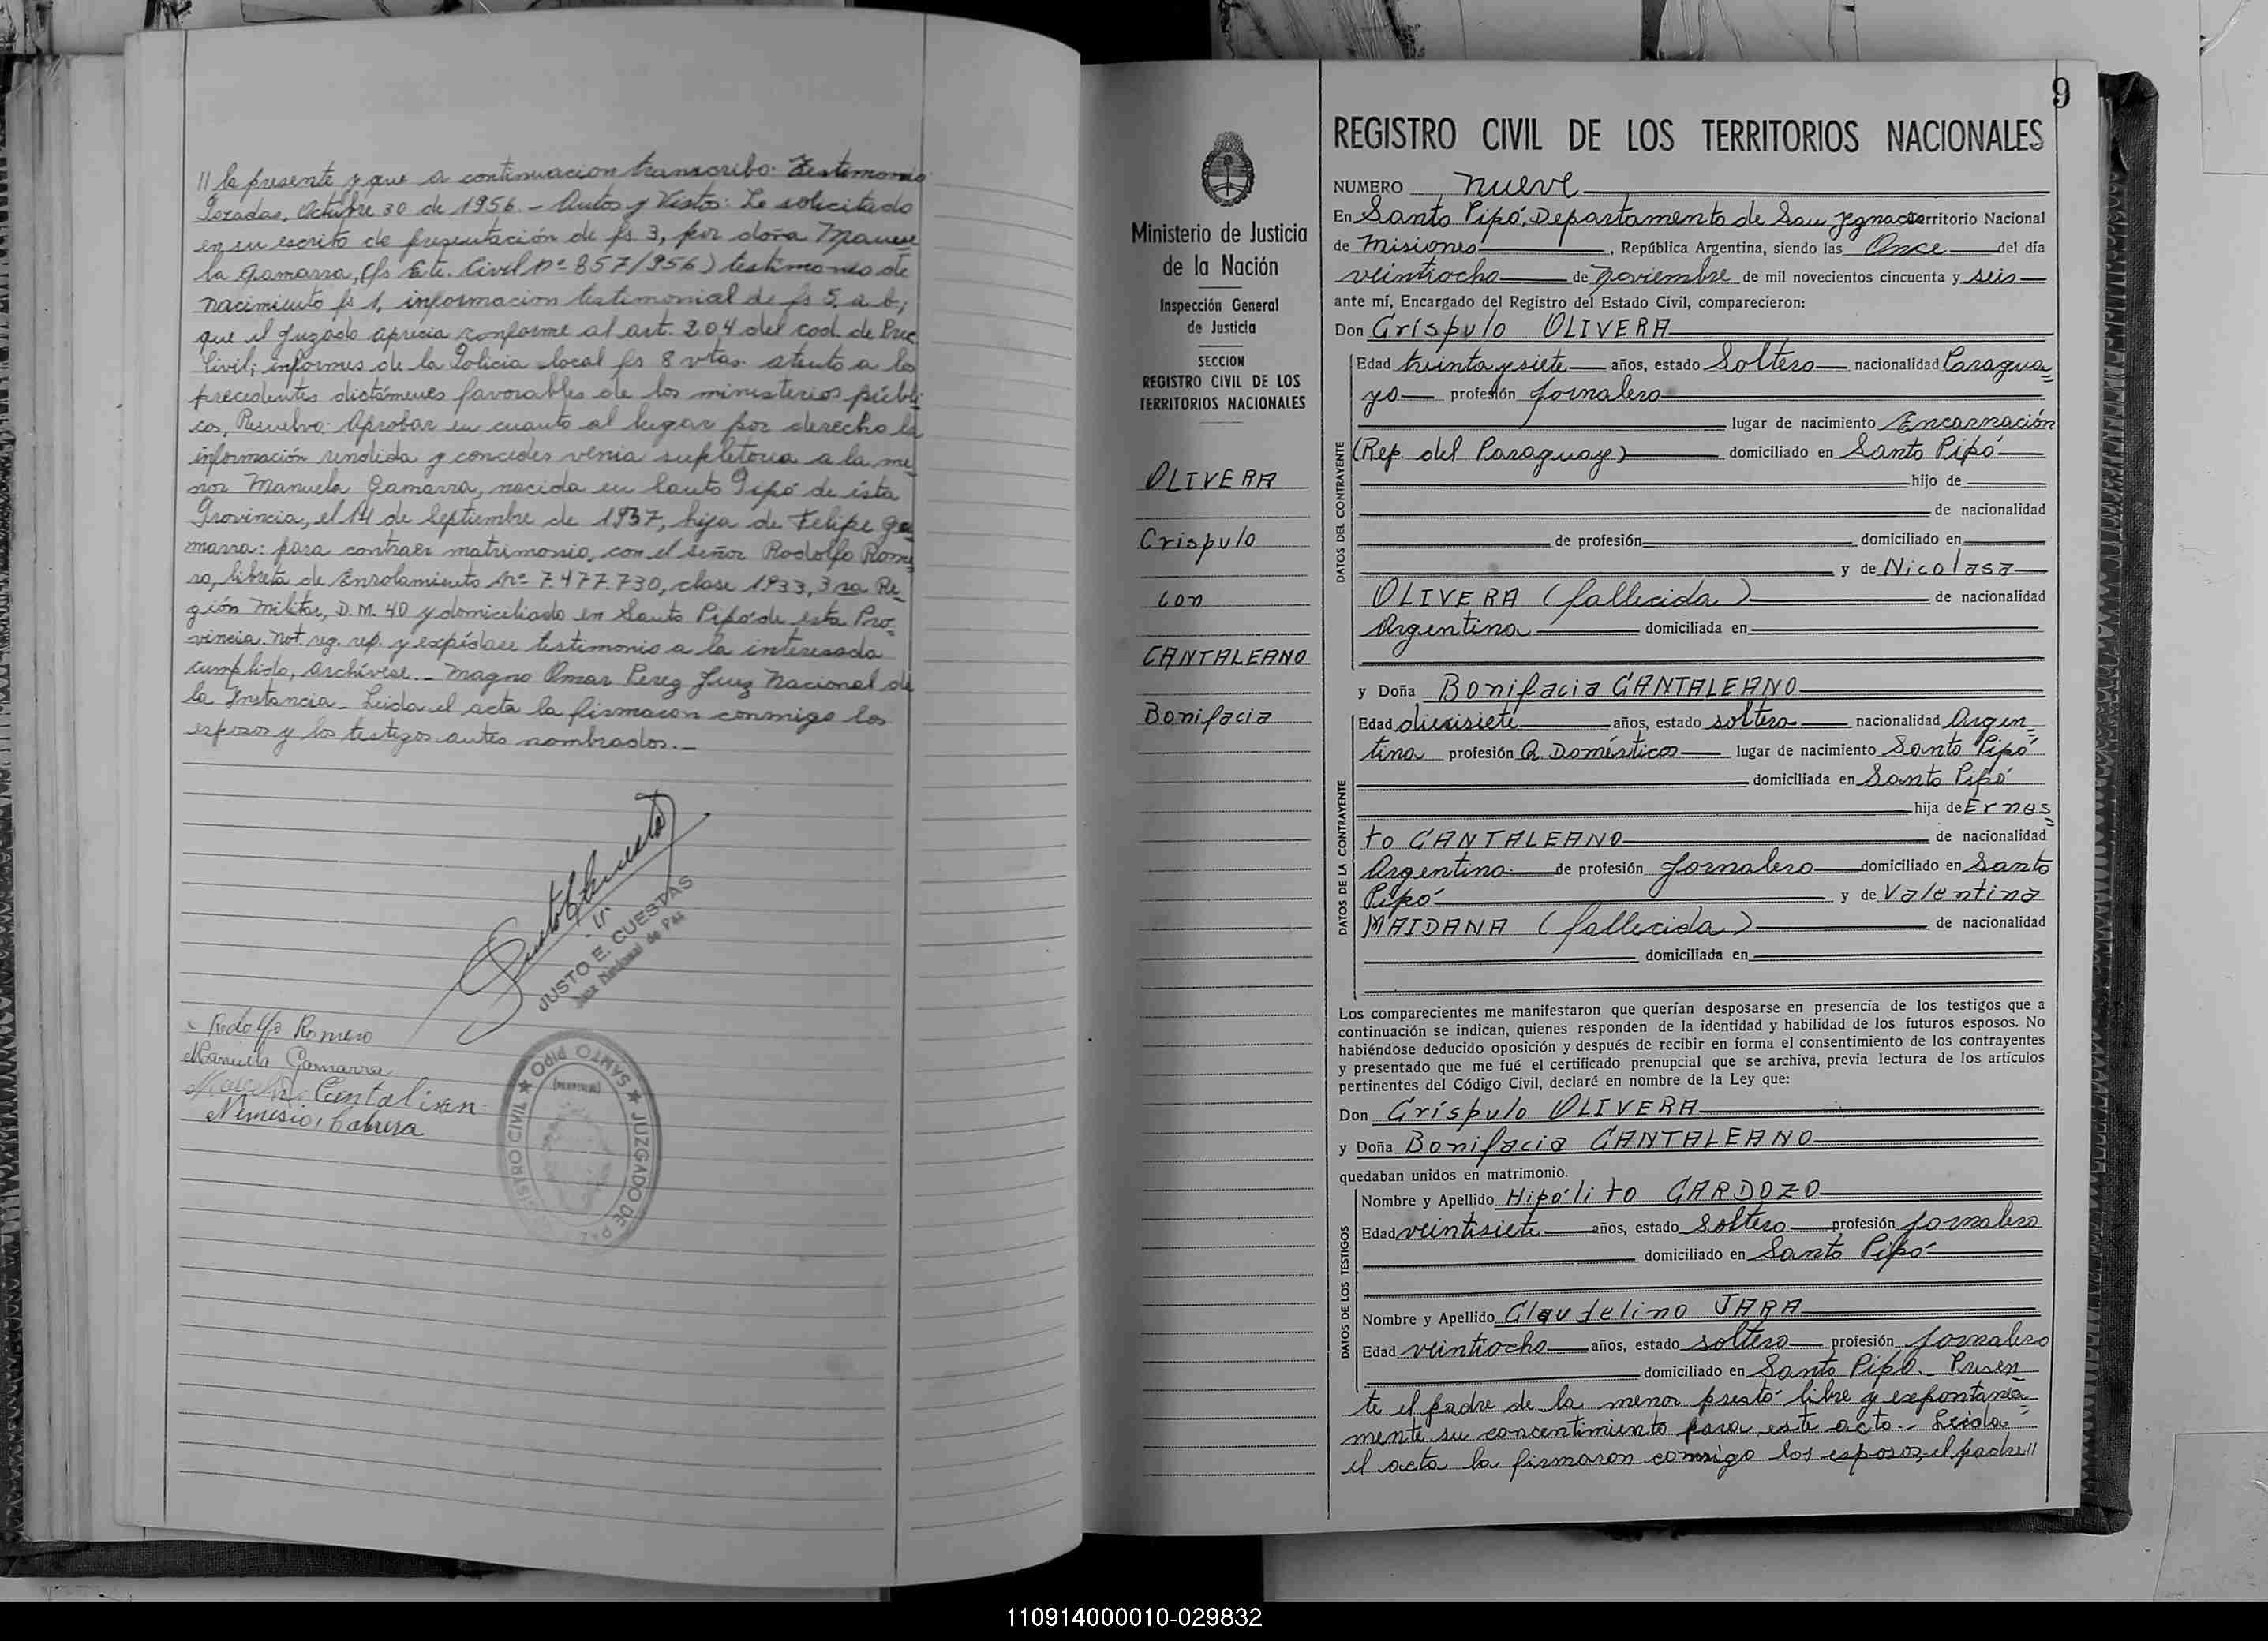 // la presente y que a continuacion transcribo: Testimonio
Posadas, Octubre 30 de 1956.- Autos y Vistos: Lo solicitado
en su escrito de presentación de fs. 3, por doña Manue=
la Gamarra, (fs Exte. Civil Nº 857/956) testimonio de
nacimiento fs 1, informacion testimonial de fs 5, a 6;
que el Juzgado aprecia conforme al art. 204 del cod. de Proc
Civil; informes de la Policia local fs 8 vtas. atento a los
precedentes dictámenes favorables de los ministerios públi-
cos, Resuelvo: Aprobar en cuanto al lugar por derecho la
información rendida y conceder venia supletoria a la me=
nor Manuela Gamarra, nacida en Santo Pipó de ésta
Provincia, el 14 de Septiembre de 1937, hija de Felipe Ga=
marra: para contraer matrimonio, con el señor Rodolfo Rome=
ro, libreta de Enrolamiento Nº 7.477.730, clase 1933, 3ra Re=
gión Militar, D.M. 40 y domiciliado en Santo Pipó de esta Pro=
vincia. Not. reg. rep. y expídase testimonio a la interesada
cumplido, archívese.- Magno Omar Perez Juez Nacional de
la Instancia- Leida el acta la firmaron conmigo los
esposos y los testigos antes nombrados.-
JUSTO E. CUESTAS
Juez Nacional de Paz
Rodolfo Romero
Manuela Gamarra
Nemesio Cabrera
REGISTRO CIVIL ★ SANTO PIPO ★ JUZGADO DE PAZ
(MISIONES)
9
REGISTRO CIVIL DE LOS TERRITORIOS NACIONALES
Ministerio de Justicia
de la Nación
Inspección General
de Justicia
SECCION
REGISTRO CIVIL DE LOS
TERRITORIOS NACIONALES
OLIVERA
Crispulo
con
CANTALEANO
Bonifacia
NUMERO nueve
En Santo Pipó, Departamento de San Ygnacio Territorio Nacional
de Misiones, República Argentina, siendo las Once del día
veintiocho de noviembre de mil novecientos cincuenta y seis
ante mí, Encargado del Registro del Estado Civil, comparecieron:
Don Críspulo OLIVERA
DATOS DEL CONTRAYENTE
Edad treinta y siete años, estado Soltero nacionalidad Paragua=
yo profesión jornalero
lugar de nacimiento Encarnación
(Rep. del Paraguay) domiciliado en Santo Pipó
hijo de
de nacionalidad
de profesión domiciliado en
y de Nicolasa
OLIVERA (fallecida) de nacionalidad
Argentina domiciliada en
y Doña Bonifacia CANTALEANO
DATOS DE LA CONTRAYENTE
Edad diecisiete años, estado soltera nacionalidad Argen=
tina profesión Q. Domésticos lugar de nacimiento Santo Pipó
domiciliada en Santo Pipó
hija de Ernes=
to CANTALEANO de nacionalidad
Argentina de profesión jornalero domiciliado en Santo
Pipó y de Valentina
MAIDANA (fallecida) de nacionalidad
domiciliada en
Los comparecientes me manifestaron que querían desposarse en presencia de los testigos que a
continuación se indican, quienes responden de la identidad y habilidad de los futuros esposos. No
habiéndose deducido oposición y después de recibir en forma el consentimiento de los contrayentes
y presentado que me fué el certificado prenupcial que se archiva, previa lectura de los artículos
pertinentes del Código Civil, declaré en nombre de la Ley que:
Don Críspulo OLIVERA
y Doña Bonifacia CANTALEANO
quedaban unidos en matrimonio.
DATOS DE LOS TESTIGOS
Nombre y Apellido Hipólito CARDOZO
Edad veintisiete años, estado Soltero profesión jornalero
domiciliado en Santo Pipó
Nombre y Apellido Claudelino JARA
Edad veintiocho años, estado soltero profesión jornalero
domiciliado en Santo Pipó.- Presen=
te el padre de la menor prestó libre y expontanea=
mente su concentimiento para este acto.- Leida
el acta la firmaron conmigo los esposos, el padre//
110914000010-029832